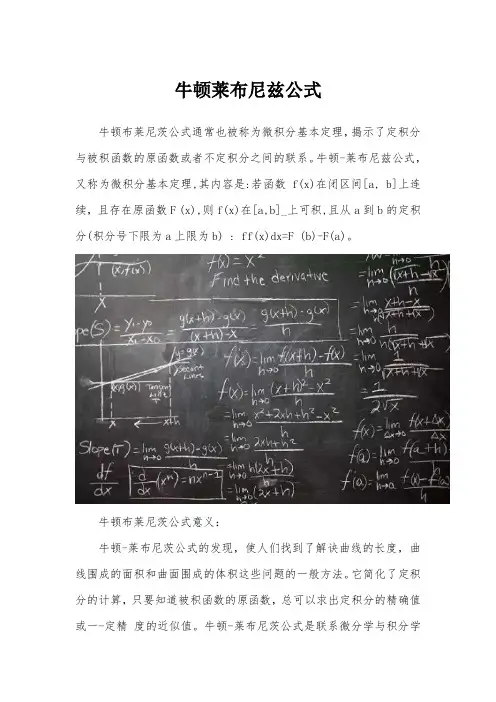 牛顿莱布尼兹公式
牛顿布莱尼茨公式通常也被称为微积分基本定理,揭示了定积分
与被积函数的原函数或者不定积分之间的联系。牛顿-莱布尼兹公式,
又称为微积分基本定理,其内容是:若函数 f(x)在闭区间[a, b]上连
续, 且存在原函数F(x),则f(x)在[a,b]_上可积,且从a到b的定积
分(积分号下限为a上限为b) : ff(x)dx=F (b)-F(a)。
(x,f(x))
X
f(x)=x²
Find the derivative
=lim h→0
h
pe(S)=y₁-y₀/x₁-x₀=g(x+h)-g(x)/(x+h)-x=g(x+h)-g(x)/h
y=g(x)
Secant Lines
Tangent Line T
x
x+h
f'(x)=lim h→0 f(x+h)-f(x)/h
f'(x)=lim h→0 (x+h)²-x²/h
=lim h→0 x²+2xh+h²-x²/h
=lim h→0 2xh+h²/h
=lim h→0 h(2x+h)/h
=lim h→0 (2x+h)
Slope(T)=lim h→0 g(x+h)-g(x)/h
df/dx
d/dx(xⁿ)=nxⁿ⁻¹
=1/2√x
f'(x)=lim f(x+Δx)
Δx
f'(a)=lim h→0 f(a+h)-
h
f'(a)=lim
牛顿布莱尼茨公式意义:
牛顿-莱布尼茨公式的发现, 使人们找到了解诀曲线的长度, 曲
线围成的面积和曲面围成的体积这些问题的一般方法。它简化了定积
分的计算, 只要知道被积函数的原函数, 总可以求出定积分的精确值
或一-定精 度的近似值。牛顿-莱布尼茨公式是联系微分学与积分学